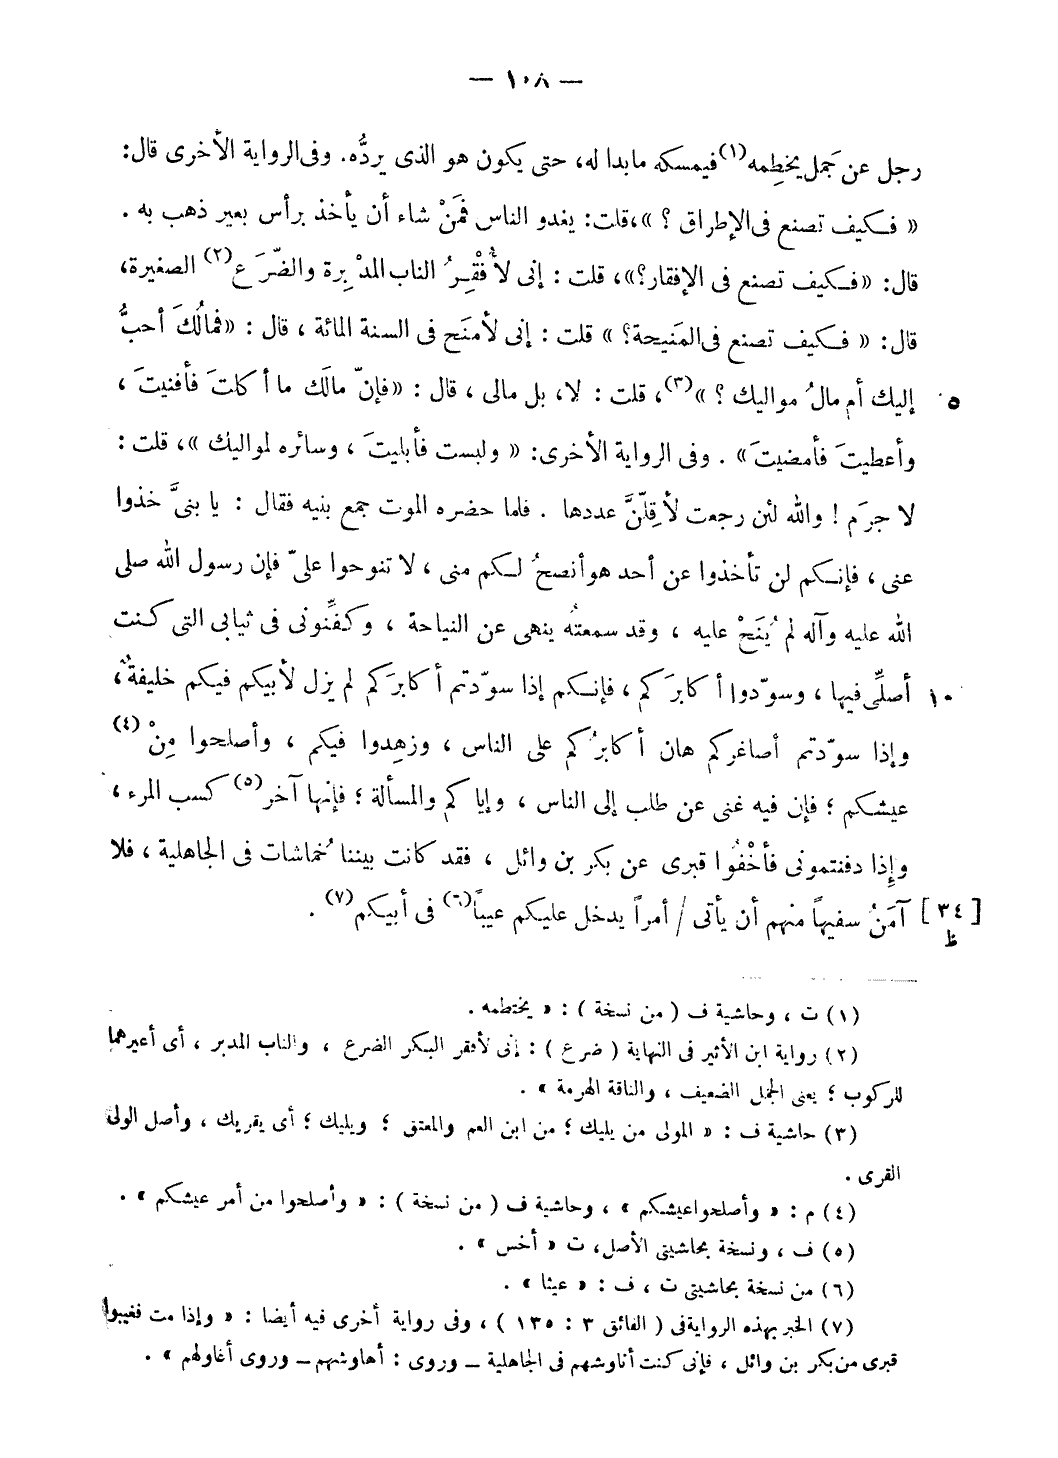 — ١٠٨ —
رجل عن جَمل يخطِمه(١) فيمسكه مابدا له، حتى يكون هو الذى يردُّه. وفى الرواية الأخرى قال:
« فكيف تصنع فى الإطراق ؟ »، قلت: يغدو الناس فمَنْ شاء أن يأخذ برأس بعير ذهب به .
قال: «فكيف تصنع فى الإفقار؟»، قلت : إنى لأُفْقِرُ الناب المدْبِرة والضّرَع(٢) الصغيرة،
قال: « فكيف تصنع فى المَنيحة؟ » قلت : إنى لأمنَح فى السنة المائة ، قال : «فمالُكَ أحبُّ
إليك أم مالُ مواليك ؟ »(٣)، قلت : لا، بل مالى ، قال : «فإنّ مالَك ما أكلتَ فأفنيتَ ، ٥
وأعطيتَ فأمضيتَ» . وفى الرواية الأخرى: « ولبست فأبليتَ ، وسائره لمواليك »، قلت :
لا جرَم ! والله لئن رجعت لأقِلّنَّ عددها . فلما حضره الموت جمع بنيه فقال : يا بنىَّ خذوا
عنى ، فإنكم لن تأخذوا عن أحد هو أنصحُ لكم منى ، لا تنوحوا علىّ فإن رسول الله صلى
الله عليه وآله لم يُنَحْ عليه ، وقد سمعتُه ينهى عن النياحة ، وكفِّنونى فى ثيابى التى كنت
أصلِّى فيها ، وسوّدوا أكابرَكم ، فإنكم إذا سوّدتم أكابرَكم لم يزل لأبيكم فيكم خليفةٌ، ١٠
وإذا سوّدتم أصاغركم هان أكابرُكم على الناس ، وزهِدوا فيكم ، وأصلحوا مِنْ(٤)
عيشكم ؛ فإن فيه غنى عن طلب إلى الناس ، وإياكم والمسألة ؛ فإنها آخر(٥) كسب المرء ،
وإِذا دفنتمونى فأخْفُوا قبرى عن بكر بن وائل ، فقد كانت بيننا خُماشات فى الجاهلية ، فلا
[٣٤ ظ] آمَنُ سفيهاً منهم أن يأتى / أمراً يدخل عليكم عيباً(٦) فى أبيكم(٧) .
(١) ت ، وحاشية ف ( من نسخة ) : « يختطمه .
(٢) رواية ابن الأثير فى النهاية ( ضرع ) : إنى لأفقر البكر الضرع ، والناب المدبر ، أى أعيرهما
للركوب ؛ يعنى الجمل الضعيف ، والناقة الهرمة » .
(٣) حاشية ف : « المولى من يليك ؛ من ابن العم والمعتق ؛ ويليك ؛ أى يقريك ، وأصل الولى
القرى .
(٤) م : « وأصلحوا عيشكم » ، وحاشية ف ( من نسخة ) : « وأصلحوا من أمر عيشكم » .
(٥) ف ، ونسخة بحاشيتى الأصل، ت « أخس » .
(٦) من نسخة بحاشيتى ت ، ف : « عيثا » .
(٧) الخبر بهذه الرواية فى ( الفائق ٣ : ١٣٥ ) ، وفى رواية أخرى فيه أيضا : « وإذا مت فغيبوا
قبرى من بكر بن وائل ، فإنى كنت أناوشهم فى الجاهلية ــ وروى : أهاوشهم ــ وروى أغاولهم » .